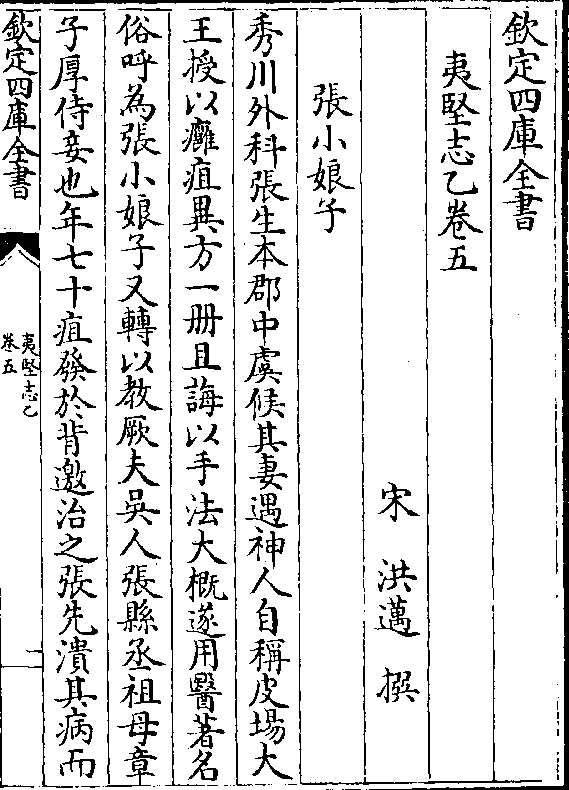 欽定四庫全書
夷堅志乙卷五
宋 洪邁 撰
張小娘子
秀川外科張生本郡中虞候其妻遇神人自稱皮場大
王授以癰疽異方一冊且誨以手法大概遂用醫著名
俗呼為張小娘子又轉以教厥夫吳人張縣丞祖母章
子厚侍妾也年七十疽發於背邀治之張先潰其病而
欽定四庫全書
夷堅志乙
卷五
一